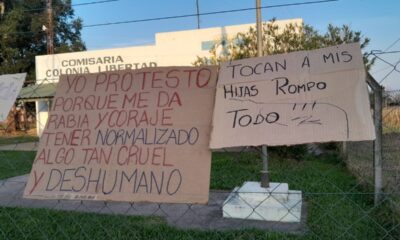 COMISARIA
COLONIA LIBERTAD
YO PROTESTO
PORQUE ME DA
RABIA Y CORAJE
TENER NORMALIZADO
ALGO TAN CRUEL
Y DESHUMANO
TOCAN A MIS
HIJAS ROMPO
TODO!!!